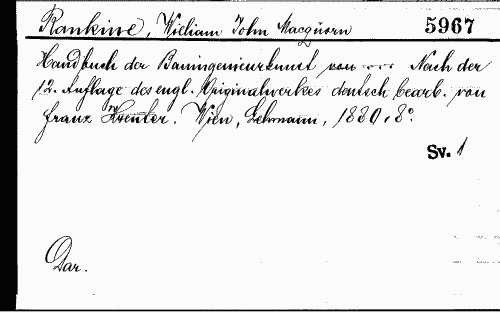 Rankine, William John Macquorn 5967
Handbuch der Bauingenieurkunst von --- Nach der
12. Auflage des engl. Originalwerkes deutsch bearb. von
Franz Kreuter. Wien, Lehmann, 1880. 8°.
Sv. 1
Dar.